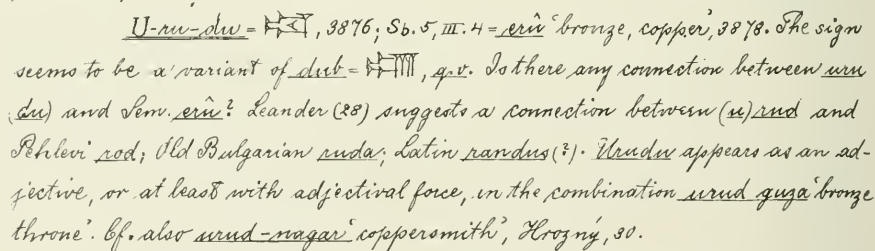 U-ru-du = 𒍏, 3876; Sb. 5, III. 4 = erû ‘bronze, copper’, 3878. The sign
seems to be a variant of dub = 𒁾, q.v. Is there any connection between uru
(du) and Sem. erû? Leander (28) suggests a connection between (u)rud and
Pehlevi rod; Old Bulgarian ruda; Latin randus (?). Urudu appears as an ad-
jective, or at least with adjectival force, in the combination urud guza ‘bronze
throne’. Cf. also urud-nagar ‘coppersmith’, Hrozný, 30.